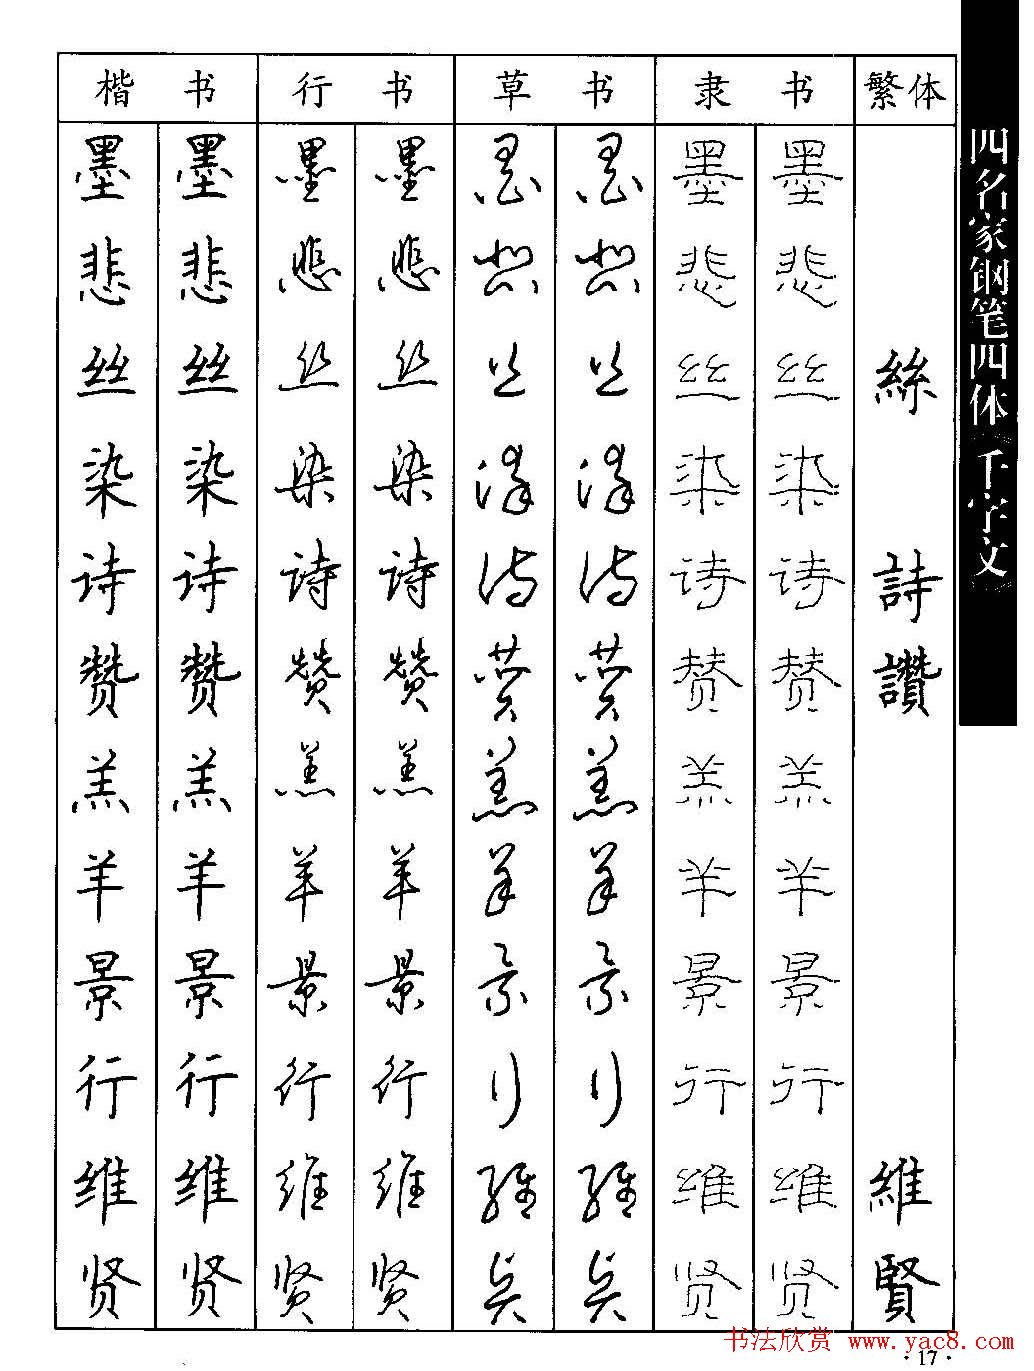 楷书 行书 草书 隶书 繁体
墨 墨 墨 墨 墨 墨 墨 墨
悲 悲 悲 悲 悲 悲 悲 悲
丝 丝 丝 丝 丝 丝 丝 丝 絲
染 染 染 染 染 染 染 染
诗 诗 诗 诗 诗 诗 诗 诗 詩
赞 赞 赞 赞 赞 赞 赞 赞 讚
羔 羔 羔 羔 羔 羔 羔 羔
羊 羊 羊 羊 羊 羊 羊 羊
景 景 景 景 景 景 景 景
行 行 行 行 行 行 行 行
维 维 维 维 维 维 维 维 維
贤 贤 贤 贤 贤 贤 贤 贤 賢
四名家钢笔四体《千字文》
书法欣赏 www.yac8.com
·17·